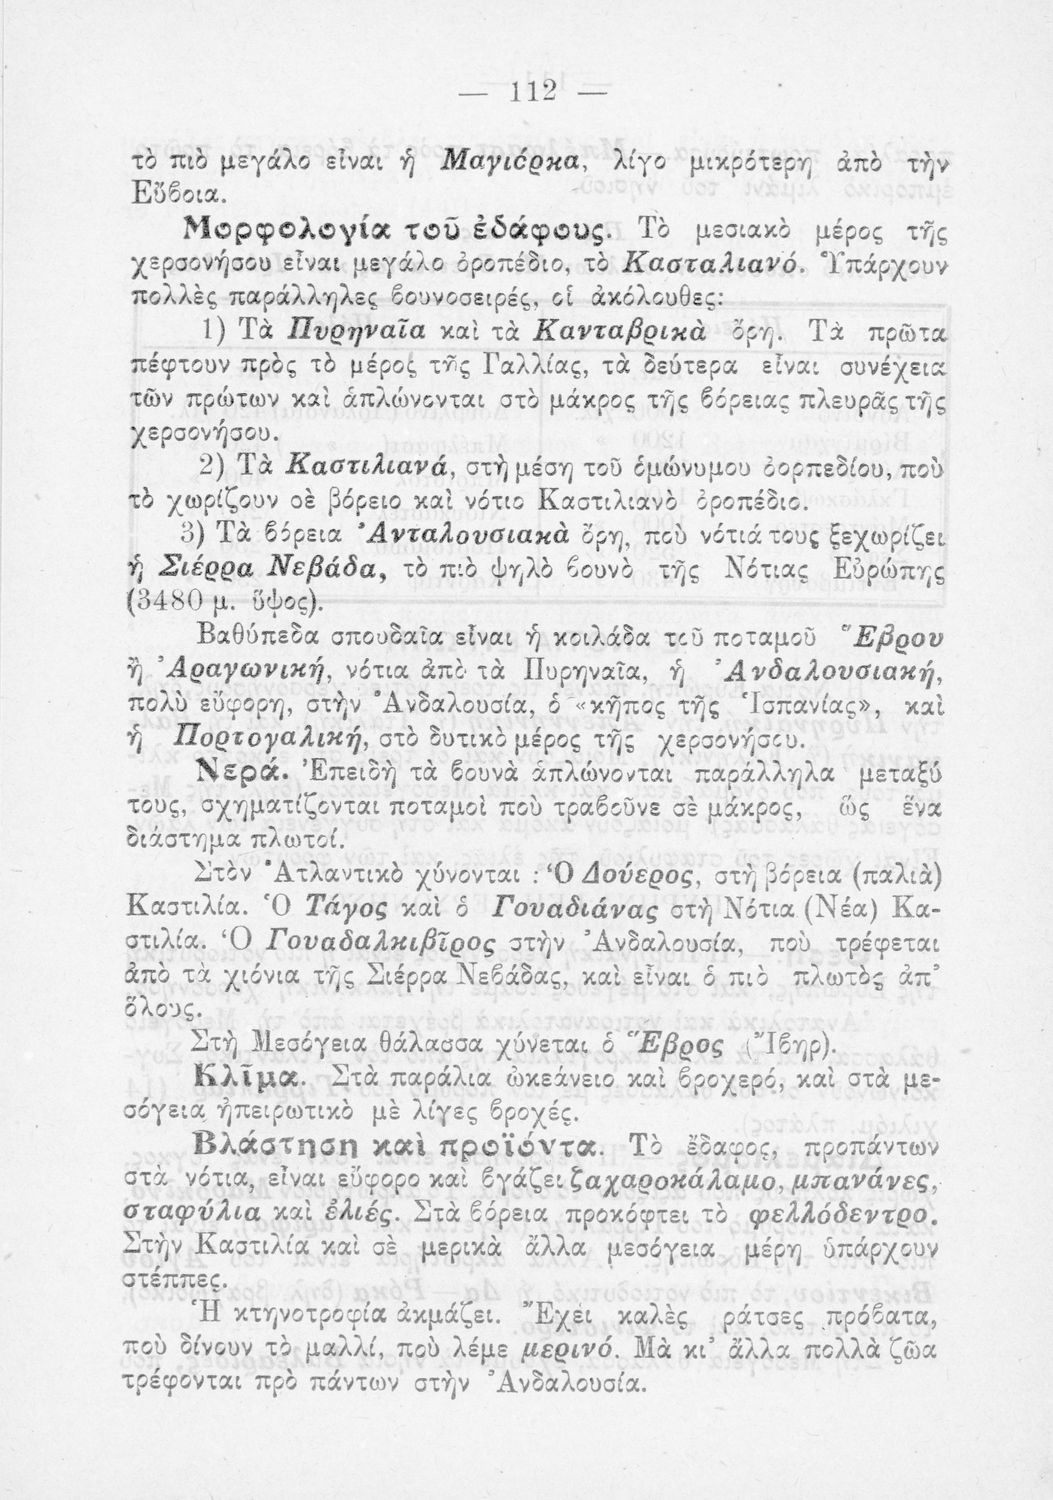 — 112 —
τὸ πιὸ μεγάλο εἶναι ἡ Μαγιόρκα, λίγο μικρότερη ἀπὸ τὴν
Εὔβοια.
Μορφολογία τοῦ ἐδάφους. Τὸ μεσιακὸ μέρος τῆς
χερσονήσου εἶναι μεγάλο ὀροπέδιο, τὸ Κασταλιανό. Ὑπάρχουν
πολλὲς παράλληλες βουνοσειρές, οἱ ἀκόλουθες:
1) Τὰ Πυρηναῖα καὶ τὰ Κανταβρικὰ ὄρη. Τὰ πρῶτα
πέφτουν πρὸς τὸ μέρος τῆς Γαλλίας, τὰ δεύτερα εἶναι συνέχεια
τῶν πρώτων καὶ ἁπλώνονται στὸ μάκρος τῆς βόρειας πλευρᾶς τῆς
χερσονήσου.
2) Τὰ Καστιλιανά, στὴ μέση τοῦ ὁμώνυμου ὀορπεδίου, ποὺ
τὸ χωρίζουν σὲ βόρειο καὶ νότιο Καστιλιανὸ ὀροπέδιο.
3) Τὰ βόρεια Ἀνταλουσιακὰ ὄρη, ποὺ νότιά τους ξεχωρίζει
ἡ Σιέρρα Νεβάδα, τὸ πιὸ ψηλὸ βουνὸ τῆς Νότιας Εὐρώπης
(3480 μ. ὕψος).
Βαθύπεδα σπουδαῖα εἶναι ἡ κοιλάδα τοῦ ποταμοῦ Ἕβρου
ἢ Ἀραγωνική, νότια ἀπὸ τὰ Πυρηναῖα, ἡ Ἀνδαλουσιακή,
πολὺ εὔφορη, στὴν Ἀνδαλουσία, ὁ «κῆπος τῆς Ἱσπανίας», καὶ
ἡ Πορτογαλική, στὸ δυτικὸ μέρος τῆς χερσονήσου.
Νερά. Ἐπειδὴ τὰ βουνὰ ἁπλώνονται παράλληλα μεταξύ
τους, σχηματίζονται ποταμοὶ ποὺ τραβοῦνε σὲ μάκρος, ὣς ἕνα
διάστημα πλωτοί.
Στὸν Ἀτλαντικὸ χύνονται : Ὁ Δούερος, στὴ βόρεια (παλιὰ)
Καστιλία. Ὁ Τάγος καὶ ὁ Γουαδιάνας στὴ Νότια (Νέα) Κα-
στιλία. Ὁ Γουαδαλκιβῖρος στὴν Ἀνδαλουσία, ποὺ τρέφεται
ἀπὸ τὰ χιόνια τῆς Σιέρρα Νεβάδας, καὶ εἶναι ὁ πιὸ πλωτὸς ἀπ’
ὅλους.
Στὴ Μεσόγεια θάλασσα χύνεται ὁ Ἕβρος (Ἴβηρ).
Κλῖμα. Στὰ παράλια ὠκεάνειο καὶ βροχερό, καὶ στὰ με-
σόγεια ἠπειρωτικὸ μὲ λίγες βροχές.
Βλάστηση καὶ προϊόντα. Τὸ ἔδαφος, προπάντων
στὰ νότια, εἶναι εὔφορο καὶ βγάζει ζαχαροκάλαμο, μπανάνες,
σταφύλια καὶ ἐλιές. Στὰ βόρεια προκόφτει τὸ φελλόδεντρο.
Στὴν Καστιλία καὶ σὲ μερικὰ ἄλλα μεσόγεια μέρη ὑπάρχουν
στέππες.
Ἡ κτηνοτροφία ἀκμάζει. Ἔχει καλὲς ράτσες πρόβατα,
ποὺ δίνουν τὸ μαλλί, ποὺ λέμε μερινό. Μὰ κι’ ἄλλα πολλὰ ζῶα
τρέφονται πρὸ πάντων στὴν Ἀνδαλουσία.